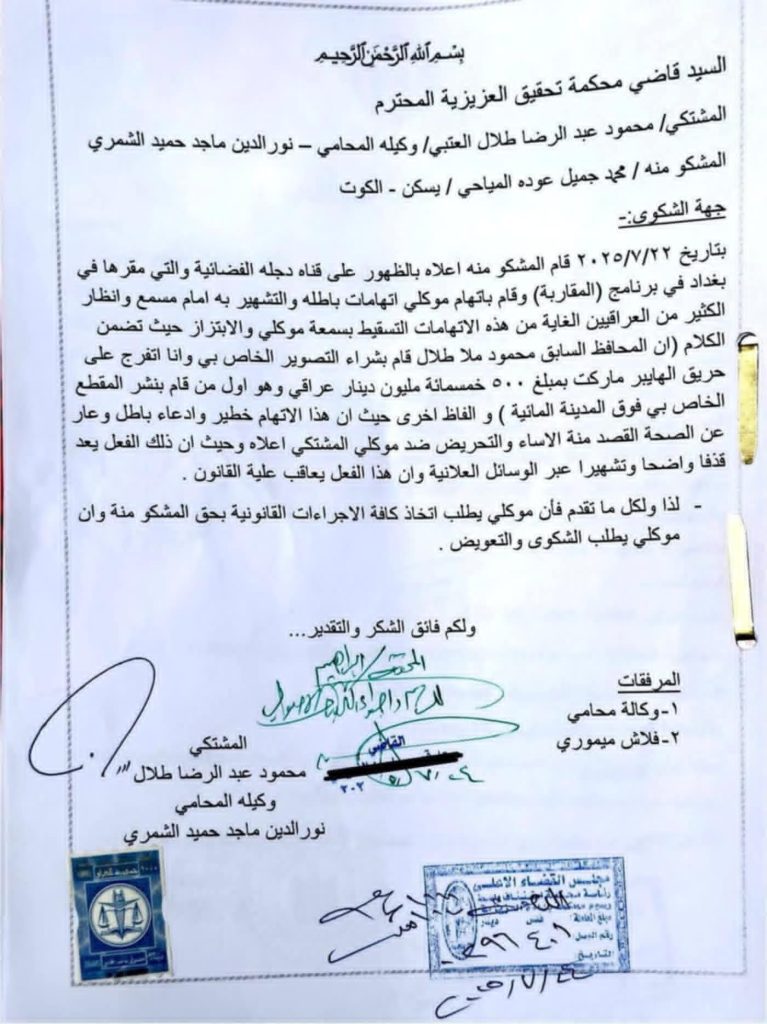 بسم الله الرحمن الرحيم
السيد قاضي محكمة تحقيق العزيزية المحترم
المشتكي/ محمود عبد الرضا طلال العتبي/ وكيله المحامي – نورالدين ماجد حميد الشمري
المشكو منه / محمد جميل عوده المياحي / يسكن - الكوت
جهة الشكوى:-
بتاريخ ٢٠٢٥/٧/٢٢ قام المشكو منه اعلاه بالظهور على قناه دجله الفضائية والتي مقرها في
بغداد في برنامج (المقاربة) وقام باتهام موكلي اتهامات باطله والتشهير به امام مسمع وانظار
الكثير من العراقيين الغاية من هذه الاتهامات التسقيط بسمعة موكلي والابتزاز حيث تضمن
الكلام (ان المحافظ السابق محمود ملا طلال قام بشراء التصوير الخاص بي وانا اتفرج على
حريق الهايبر ماركت بمبلغ ٥٠٠ خمسمائة مليون دينار عراقي وهو اول من قام بنشر المقطع
الخاص بي فوق المدينة المائية ) و الفاظ اخرى حيث ان هذا الاتهام خطير وادعاء باطل وعار
عن الصحة القصد منة الاساء والتحريض ضد موكلي المشتكي اعلاه وحيث ان ذلك الفعل يعد
قذفا واضحا وتشهيرا عبر الوسائل العلانية وان هذا الفعل يعاقب علية القانون .
- لذا ولكل ما تقدم فأن موكلي يطلب اتخاذ كافة الاجراءات القانونية بحق المشكو منة وان
موكلي يطلب الشكوى والتعويض .
ولكم فائق الشكر والتقدير...
المرفقات
١-وكالة محامي
٢-فلاش ميموري
القاضي
المشتكي
محمود عبد الرضا طلال
وكيله المحامي
نورالدين ماجد حميد الشمري
مجلس القضاء الاعلى